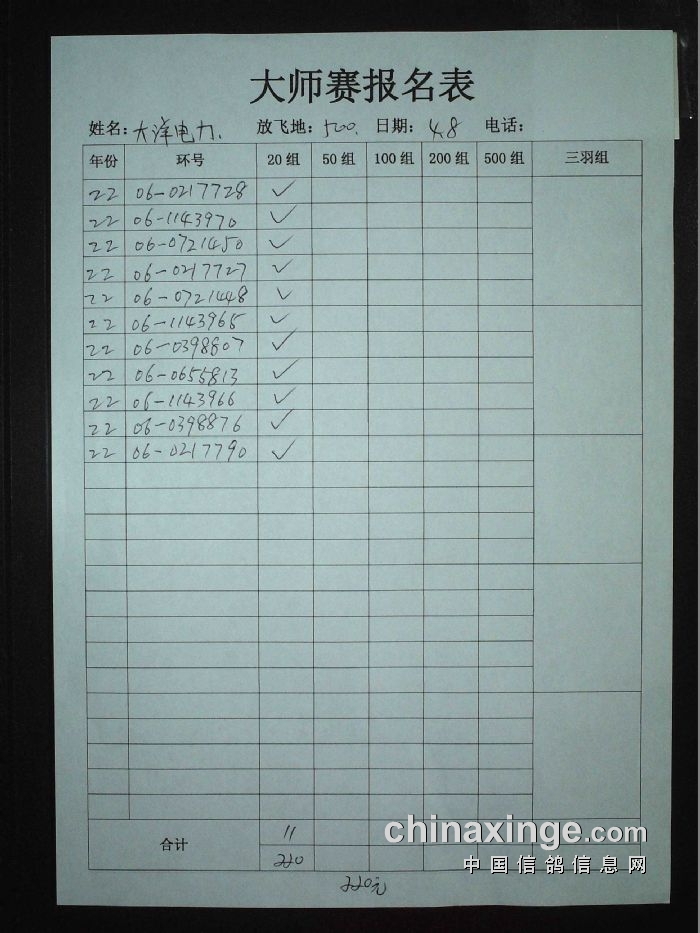 大师赛报名表
姓名: 大洋电力. 放飞地: 500. 日期: 4.8 电话:
年份 环号 20 组 50 组 100 组 200 组 500 组 三羽组
22 06-0217728 ✓
22 06-1143970 ✓
22 06-0721450 ✓
22 06-0217727 ✓
22 06-0721448 ✓
22 06-1143965 ✓
22 06-0398807 ✓
22 06-0655813 ✓
22 06-1143966 ✓
22 06-0398876 ✓
22 06-0217790 ✓
合计 11
220
220元
chinaxinge.com
中国信鸽信息网